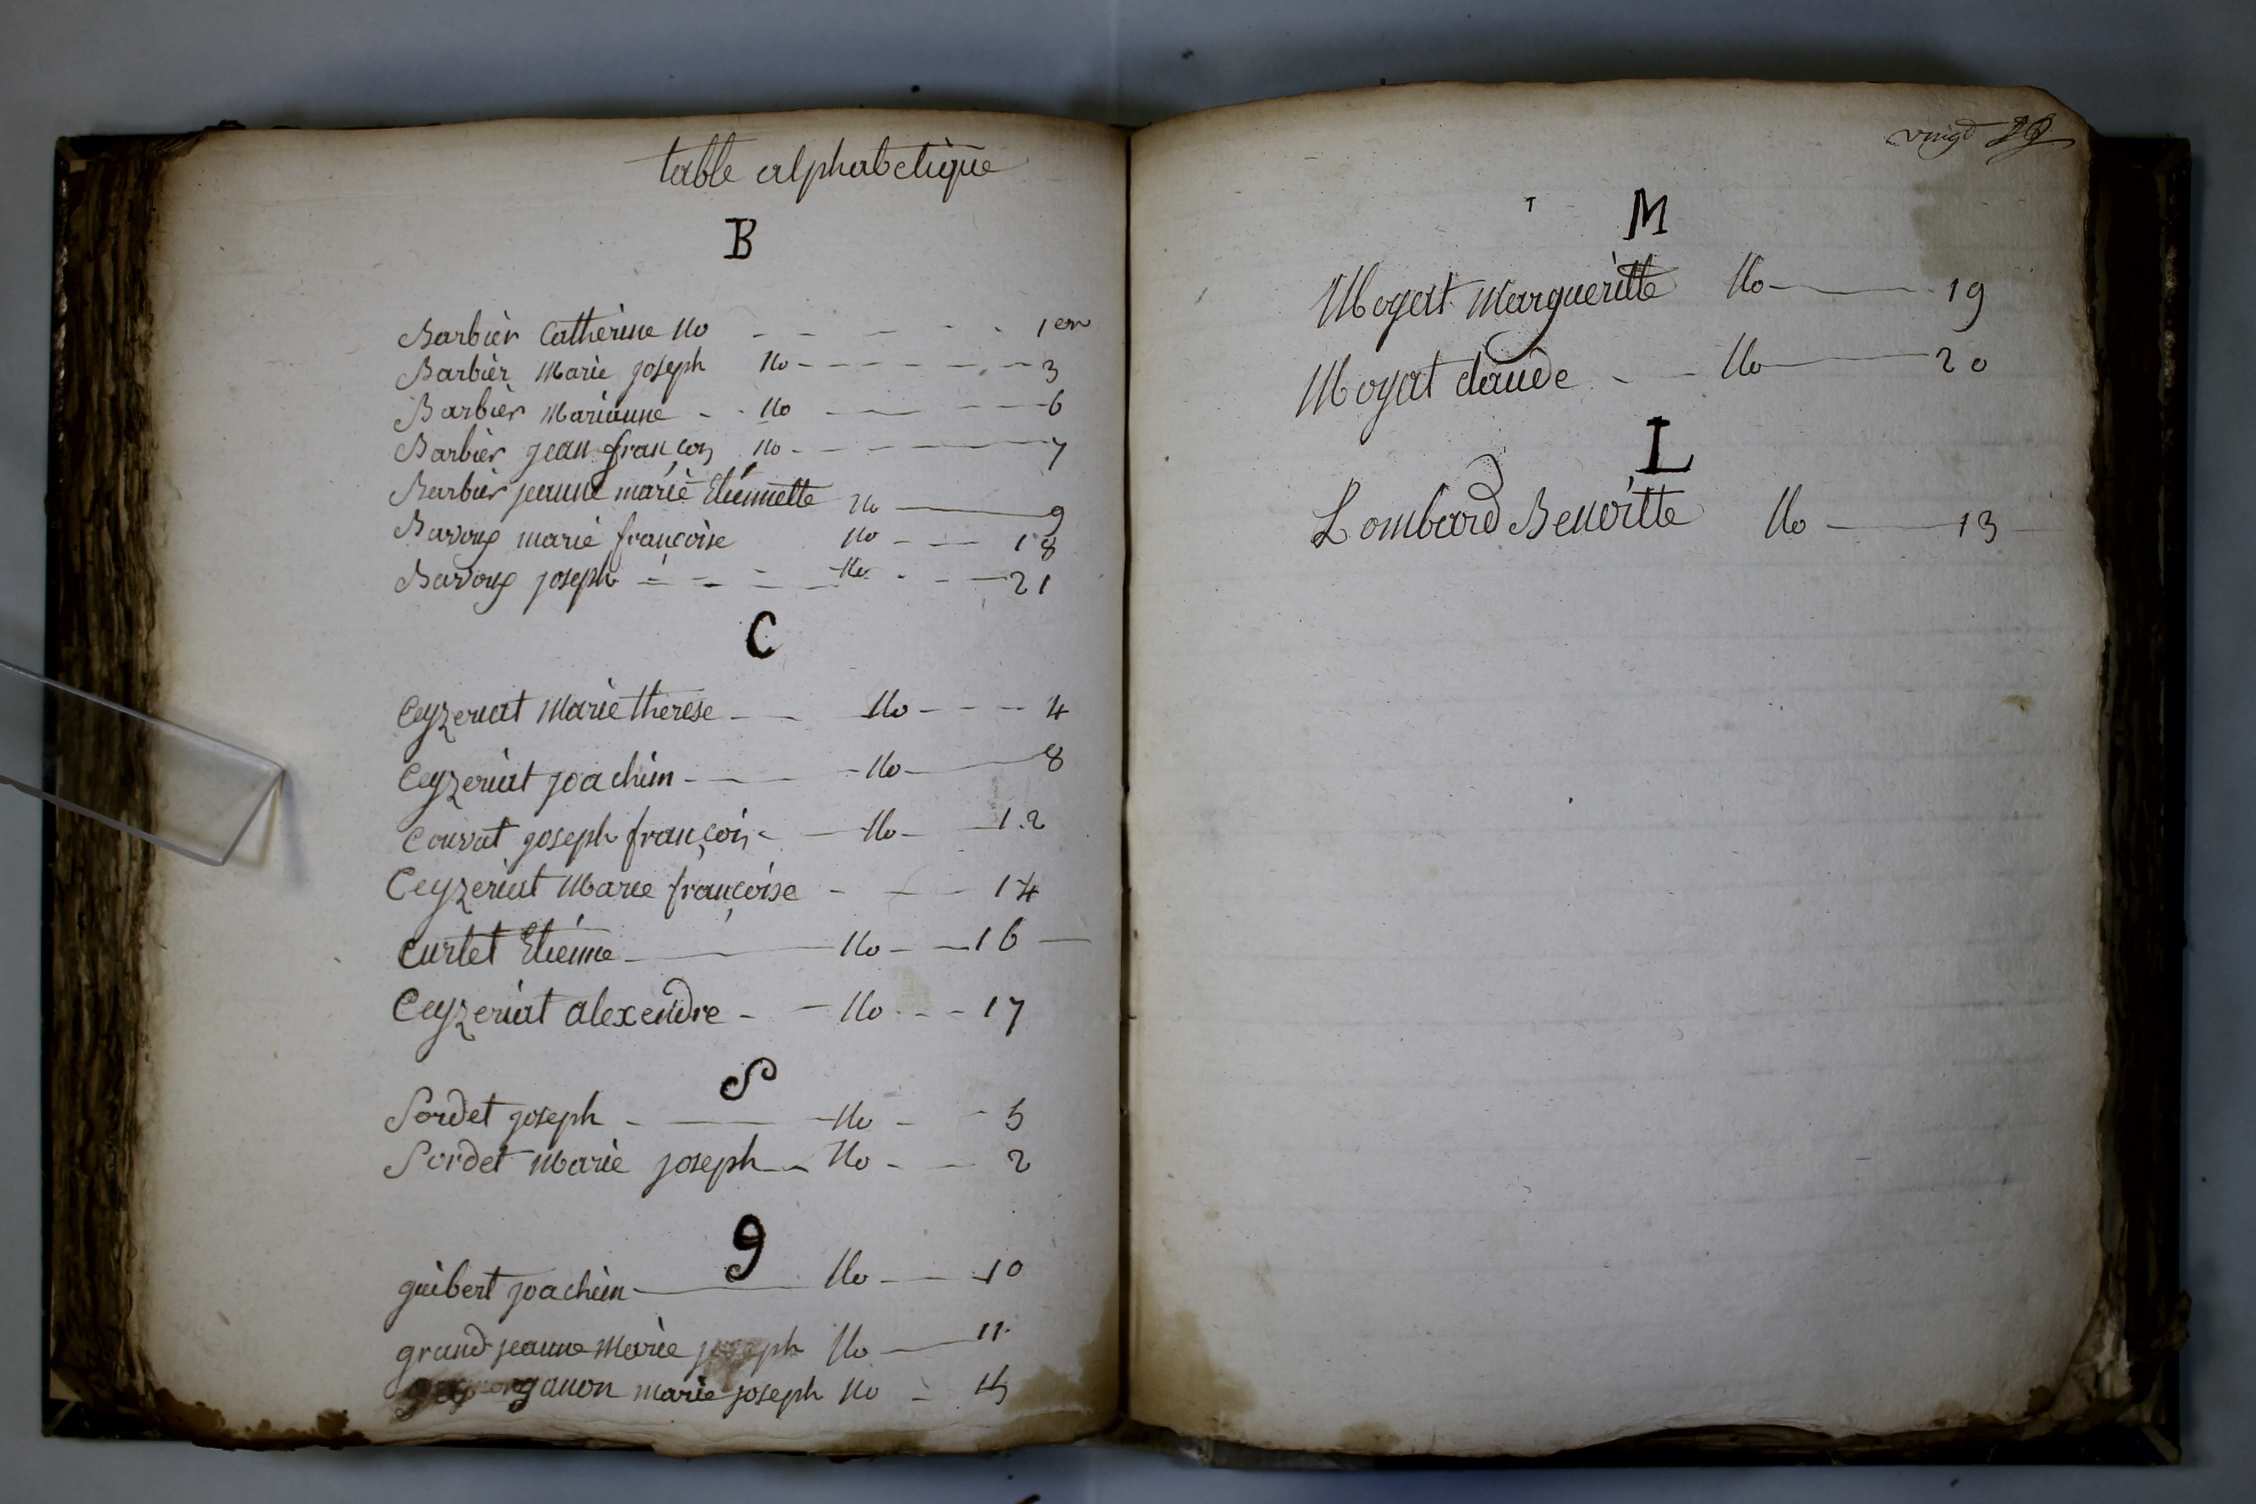 table alphabetique
B
Barbier Catherine No - - - - - 1er
Barbier Marie joseph No - - - - - 3
Barbier Marianne - - No - - - 6
Barbier jean françois No - - - - 7
Barbier jeanne marie Etiennette No - 9
Bavoux marie françoise No - - - 18
Bavoux joseph - - - - No - - - 21
C
Ceyzeriat Marie therese - - No - - - 4
Ceyzeriat joachim - - - No - 8
Couvat joseph françois - - No - - 12
Ceyzeriat Marie françoise - - - 14
Curtet Etienne - - No - - 16 -
Ceyzeriat alexendre - - No - - - 17
S
Sordet joseph - - - No - - 5
Sordet Marie joseph - - No - - 2
g
guibert joachim - No - - 10
grand jeanne Marie joseph No - 11
ganon marie joseph No - 15
vingt
M
Moyat Margueritte No - 19
Moyat claude - - No - 20
L
Lombard Benoitte No - 13